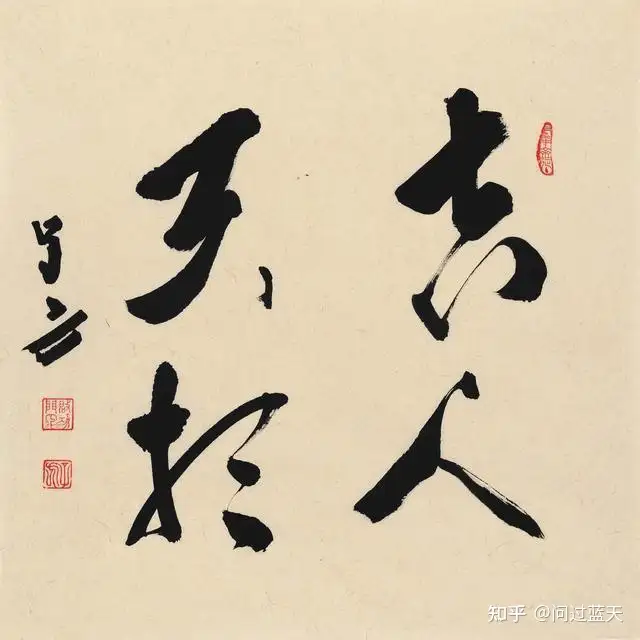 吉人
天相
知乎 @问过蓝天